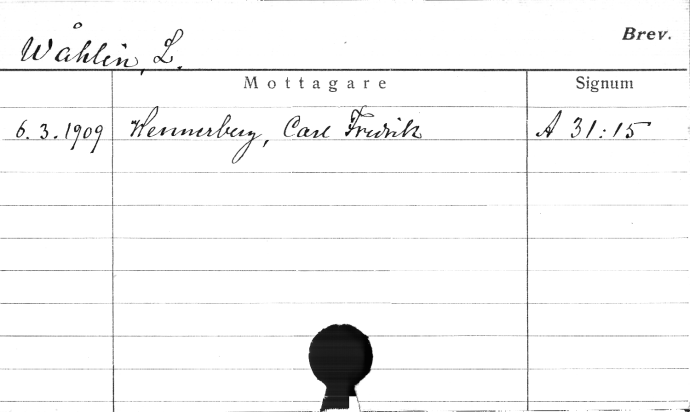 Brev.
Wåhlin, L.
Mottagare Signum
6.3.1909 Hennerberg, Carl Fredrik A 31:15